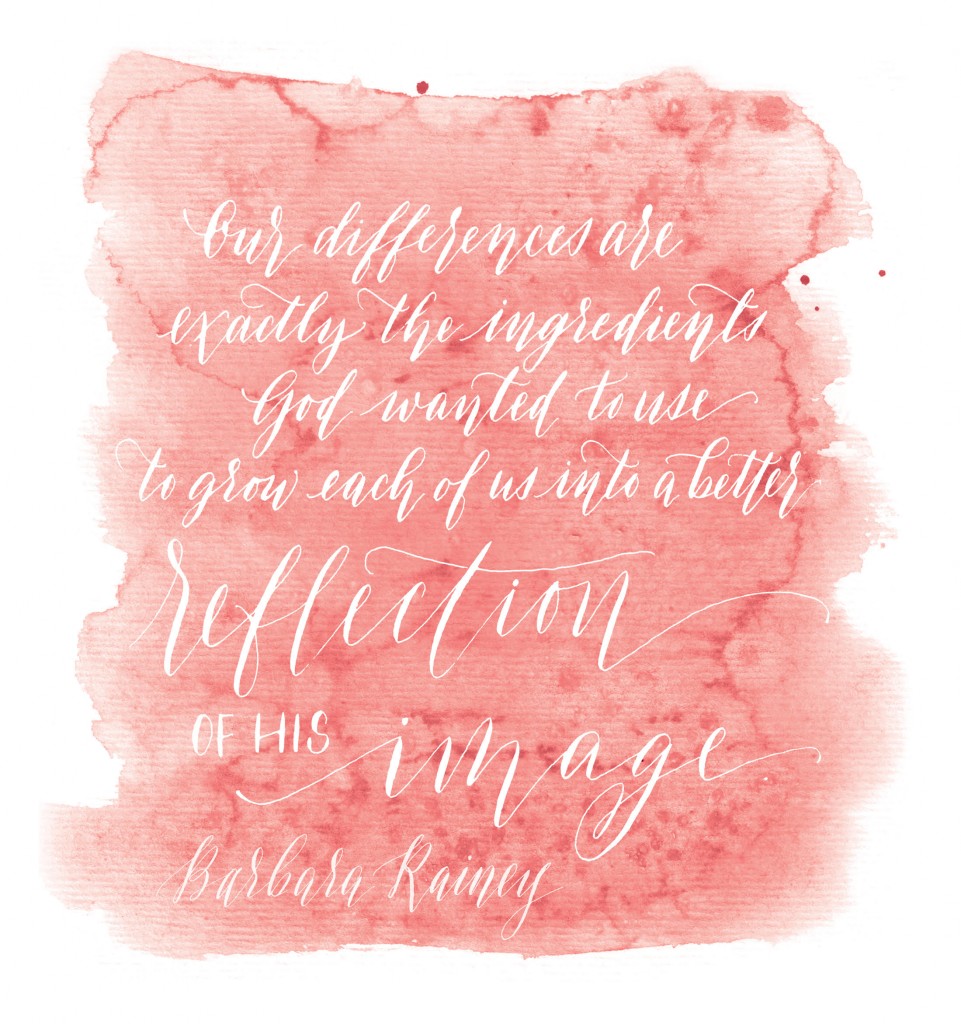 Our differences are
exactly the ingredients
God wanted to use
to grow each of us into a better
reflection
OF HIS image
Barbara Rainey